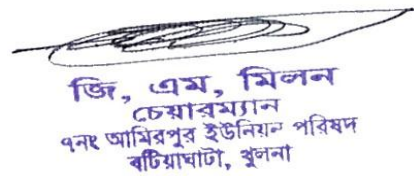 জি, এম, মিলন
চেয়ারম্যান
৭নং আমিরপুর ইউনিয়ন পরিষদ
বটিয়াঘাটা, খুলনা